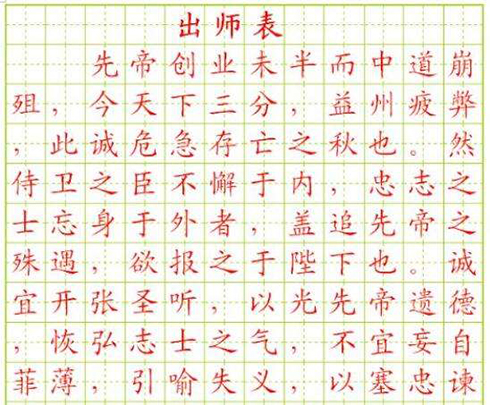 出师表
先帝创业未半而中道崩
殂，今天下三分，益州疲弊
，此诚危急存亡之秋也。然
侍卫之臣不懈于内，忠志之
士忘身于外者，盖追先帝之
殊遇，欲报之于陛下也。诚
宜开张圣听，以光先帝遗德
，恢弘志士之气，不宜妄自
菲薄，引喻失义，以塞忠谏